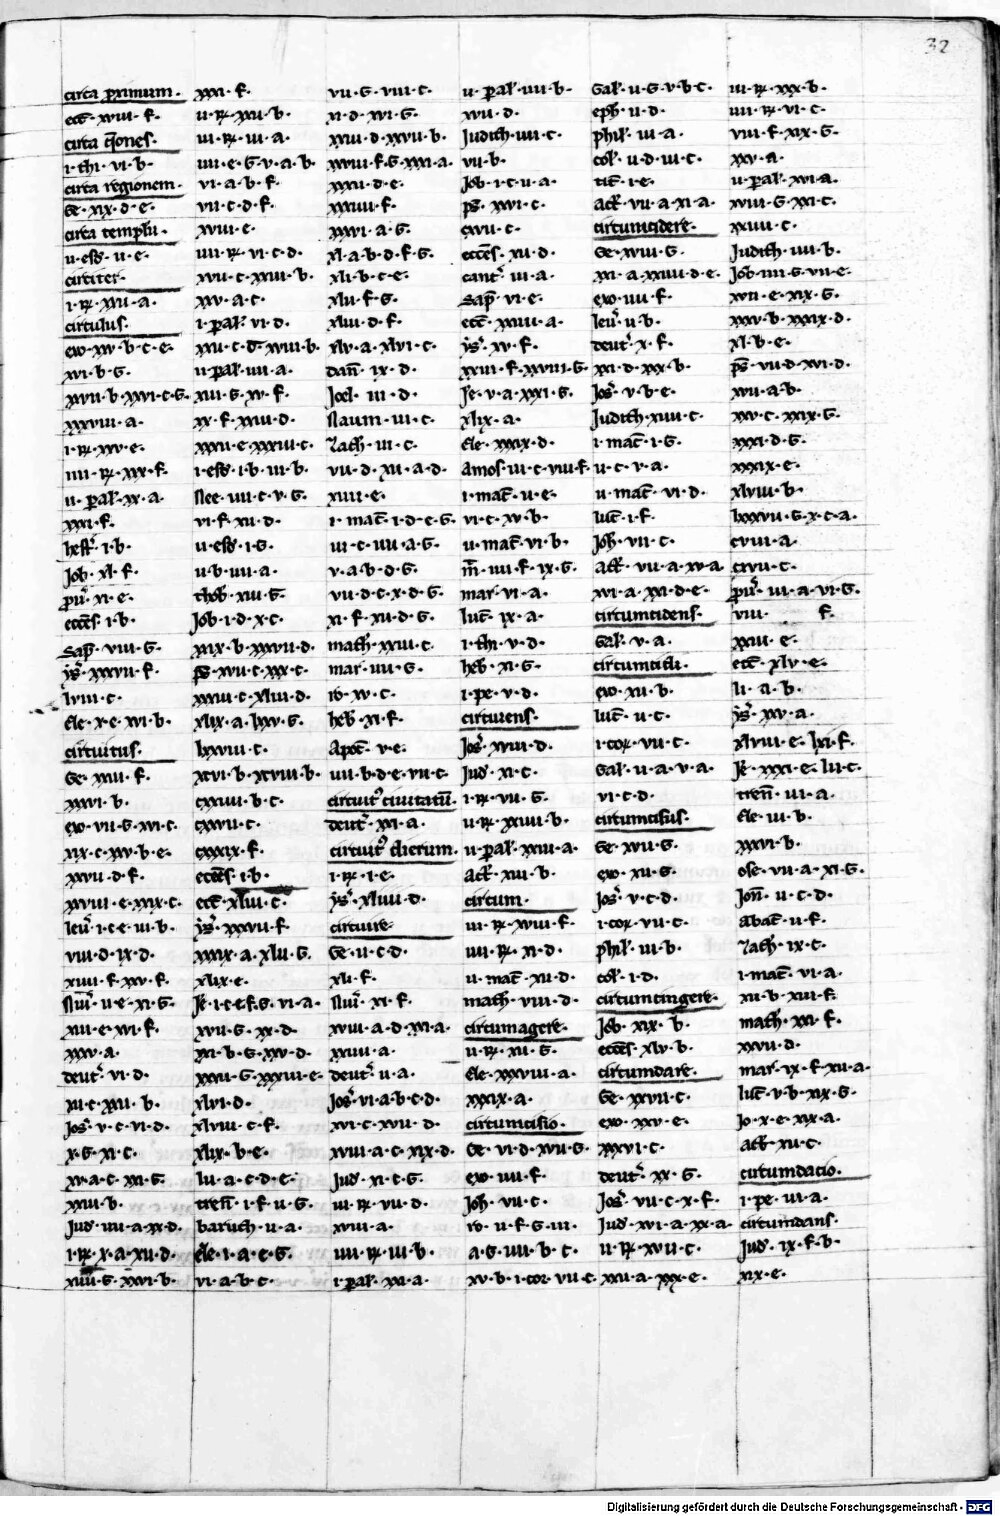 32
circa proximum.
ecc̄. xviii. f.
circa q̄ones.
i. thi. vi. b.
circa regionem.
Ge. xix. d. e.
circa templū.
ii. esd. ii. e.
circiter.
i. R. xxii. a.
circulus.
exo. xxv. b. c. e.
xvi. b. G.
xxvii. b. xxvi. c. G.
xxxviii. a.
i. R. xv. e.
iiii. R. xxx. f.
ii. pal. xx. a.
xxxi. f.
hest. i. b.
Job. xl. f.
pu. xi. e.
ecces. i. b.
Sap. viii. G.
ys. xxxvii. f.
lviii. c.
Ele. x. e. xvi. b.
circuitus.
Ge. xxiii. f.
xxxvi. b.
exo. vii. G. xvi. c.
xix. c. xxv. b. e.
xxvii. d. f.
xxviii. e. xxix. c.
leu. i. c. e. iii. b.
viii. d. ix. d.
xiiii. f. xv. f.
Nu. ii. e. xi. G.
xvi. f.
xxxv. a.
deut. vi. d.
Jos. v. c. vi. d.
x. G. xi. c.
xxiii. b.
Jud. iiii. a. xx. d.
i. R. x. a. xii. d.
xiiii. G. xxvi. b.
xxxi. f.
ii. R. xxii. b.
iii. R. iii. a.
iiii. e. G. v. a. b.
vi. a. b. f.
vii. c. d. f.
xviii. e.
iiii. R. vi. c. d.
xvii. c. xxiii. b.
xxv. a. c.
i. pal. vi. d.
ii. pal. iiii. a.
xiii. G. xv. f.
xx. f. xxiii. d.
xxxii. e. xxxiii. c.
i. esd. i. b. iii. b.
Nee. iiii. c. v. G.
vi. f. xii. d.
ii. esd. i. G.
ii. b. iiii. a.
thob. xiii. G.
Job. i. d. x. c.
xix. b. xxxvii. d.
ps. xvii. c. xxx. c.
xxxiii. c. xliii. d.
xlix. a. lxxv. G.
lxxviii. c.
xcvi. b. xcviii. b.
cxxiiii. b. c.
cxxvii. c.
cxxxix. f.
ecces. i. b.
ecc. xliii. c.
ys. xxxvii. f.
xxxix. a. xlii. G.
xlix. e.
xvii. G. xx. d.
xxi. b. G. xxv. d.
xxxii. G. xxxiii. e.
xlvi. d.
xlviii. c. f.
xlix. b. e.
lii. a. c. d. e.
tren. i. f. ii. G.
baruch. ii. a.
Ele. i. a. e. G.
vi. a. b. c.
vii. G. viii. c.
xi. d. xvi. G.
xxiii. d. xxvii. b.
xxviii. f. G. xxxi. a.
xxxii. d. e.
xxxiiii. f.
xxxvi. a. G.
xl. a. b. d. f. G.
xli. b. c. e.
xlii. f. G.
xliii. d. f.
xlv. a. xlvi. c.
dan. ix. d.
Joel. iii. d.
Naum. iii. c.
Zach. iii. c.
vii. d. xii. a. d.
xiiii. e.
i. mac. i. d. e. G.
iii. c. iiii. a. G.
v. a. b. d. G.
vii. d. c. x. d. G.
xi. f. xii. d. G.
math. xxiii. c.
mar. iiii. G.
ro. xv. c.
heb. xi. f.
Apoc. v. e.
iiii. b. d. e. vii. c.
circuit9 civitatū.
deut. xxi. a.
circuit9 dierum.
i. R. i. e.
ys. xliiii. d.
circuire.
Ge. ii. c. d.
xli. f.
Nu. xi. f.
xviii. a. d. xxi. a.
xxiiii. a.
deut. ii. a.
Jos. vi. a. b. c. d.
xvi. c. xvii. d.
xviii. a. c. xix. d.
Jud. xi. c. G.
iii. R. vii. d.
xviii. a.
iiii. R. iii. b.
i. pal. xxi. a.
ii. pal. iiii. b.
xvii. d.
Judith. iiii. c.
vii. b.
Job. i. c. ii. a.
ps. xxvi. c.
cxvii. c.
ecces. xii. d.
cant. iii. a.
Sap. vi. e.
ecc. xxiiii. a.
ys. xv. f.
xxiii. f. xxviii. G.
Je. v. a. xxxi. G.
xlix. a.
Ele. xxxix. d.
Amos. iii. c. viii. f.
i. mac. ii. e.
vi. c. xv. b.
ii. mac. vi. b.
m. iiii. f. ix. G.
mar. vi. a.
luc. ix. a.
i. thi. v. d.
heb. xi. G.
i. pe. v. d.
circuiens.
Jos. xviii. d.
Jud. xi. c.
i. R. vii. G.
ii. R. xxiiii. b.
ii. pal. xxiii. a.
Act. xiii. b.
circum.
iii. R. xviii. f.
iiii. R. xi. d.
ii. mac. xii. d.
math. viii. d.
circumagere.
ii. R. xii. G.
Ele. xxxviii. a.
xxxix. a.
circumcisio.
Ge. vi. d. xvii. G.
exo. iiii. f.
Joh. vii. c.
ro. ii. f. G. iii.
a. G. iiii. b. c.
xv. b. i. cor. vii. c.
Gal. ii. G. v. b. c.
eph. ii. d.
phil. iii. a.
col. ii. d. iii. c.
tit. i. e.
Act. vii. a. xi. a.
circumcidere.
Ge. xviii. G.
xxi. a. xxiiii. d. e.
exo. iiii. f.
leu. ii. b.
deut. x. f.
xxi. d. xxx. b.
Jos. v. b. e.
Judith. xiii. c.
i. mac. i. G.
ii. c. v. a.
ii. mac. vi. d.
luc. i. f.
Joh. vii. c.
Act. vii. a. xv. a.
xvi. a. xxi. d. e.
circumcidens.
Gal. v. a.
circumcisi.
exo. xii. b.
luc. ii. c.
i. cor. vii. c.
Gal. ii. a. v. a.
vi. c. d.
circumcisus.
Ge. xvii. G.
exo. xii. G.
Jos. v. c. d.
i. cor. vii. c.
phil. iii. b.
col. i. d.
circumcingere.
Job. xix. b.
ecces. xlv. b.
circumdare.
Ge. xxvii. c.
exo. xxv. e.
xxxvi. c.
deut. xx. G.
Jos. vii. c. x. f.
Jud. xvi. a. xx. a.
ii. R. xvii. c.
xxii. a. xxx. e.
iii. R. xxx. b.
iiii. R. vi. c.
viii. f. xix. G.
xxv. a.
ii. pal. xvi. a.
xviii. G. xxi. c.
xxiii. c.
Judith. iiii. b.
Job. iii. G. vii. e.
xvii. e. xix. G.
xxxv. b. xxxix. d.
xl. b. e.
ps. vii. d. xvi. d.
xvii. a. b.
xxv. c. xxix. G.
xxxi. d. G.
xxxix. e.
xlviii. b.
lxxxvii. G. x. c. a.
cviii. a.
cxvii. c.
pu. iii. a. vi. G.
viii. f.
xxiii. e.
ecc. xlv. e.
li. a. b.
ys. xxv. a.
xlviii. e. lxi. f.
Je. xxxi. e. lii. c.
tren. iii. a.
Ele. iii. b.
xxxvi. b.
ose. vii. a. xi. G.
Jon. ii. c. d.
Abac. ii. f.
Zach. ix. c.
i. mac. vi. a.
xii. b. xiii. f.
math. xxi. f.
xxvii. d.
mar. ix. f. xii. a.
luc. v. b. xix. G.
Jo. x. e. xix. a.
act. xii. c.
circumdacio.
i. pe. iii. a.
circumdans.
Jud. ix. f. b.
xix. e.
Digitalisierung gefördert durch die Deutsche Forschungsgemeinschaft - DFG